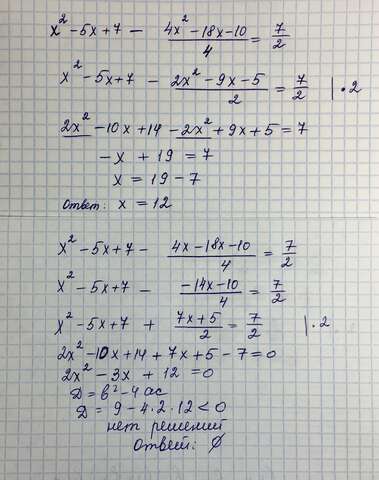 x² - 5x + 7 - (4x² - 18x - 10)/4 = 7/2
x² - 5x + 7 - (2x² - 9x - 5)/2 = 7/2 | · 2
2x² - 10x + 14 - 2x² + 9x + 5 = 7
- x + 19 = 7
x = 19 - 7
Ответ: x = 12
x² - 5x + 7 - (4x - 18x - 10)/4 = 7/2
x² - 5x + 7 - (-14x - 10)/4 = 7/2
x² - 5x + 7 + (7x + 5)/2 = 7/2 | · 2
2x² - 10x + 14 + 7x + 5 - 7 = 0
2x² - 3x + 12 = 0
Д = b² - 4ac
Д = 9 - 4 · 2 · 12 < 0
нет решений
Ответ: ∅